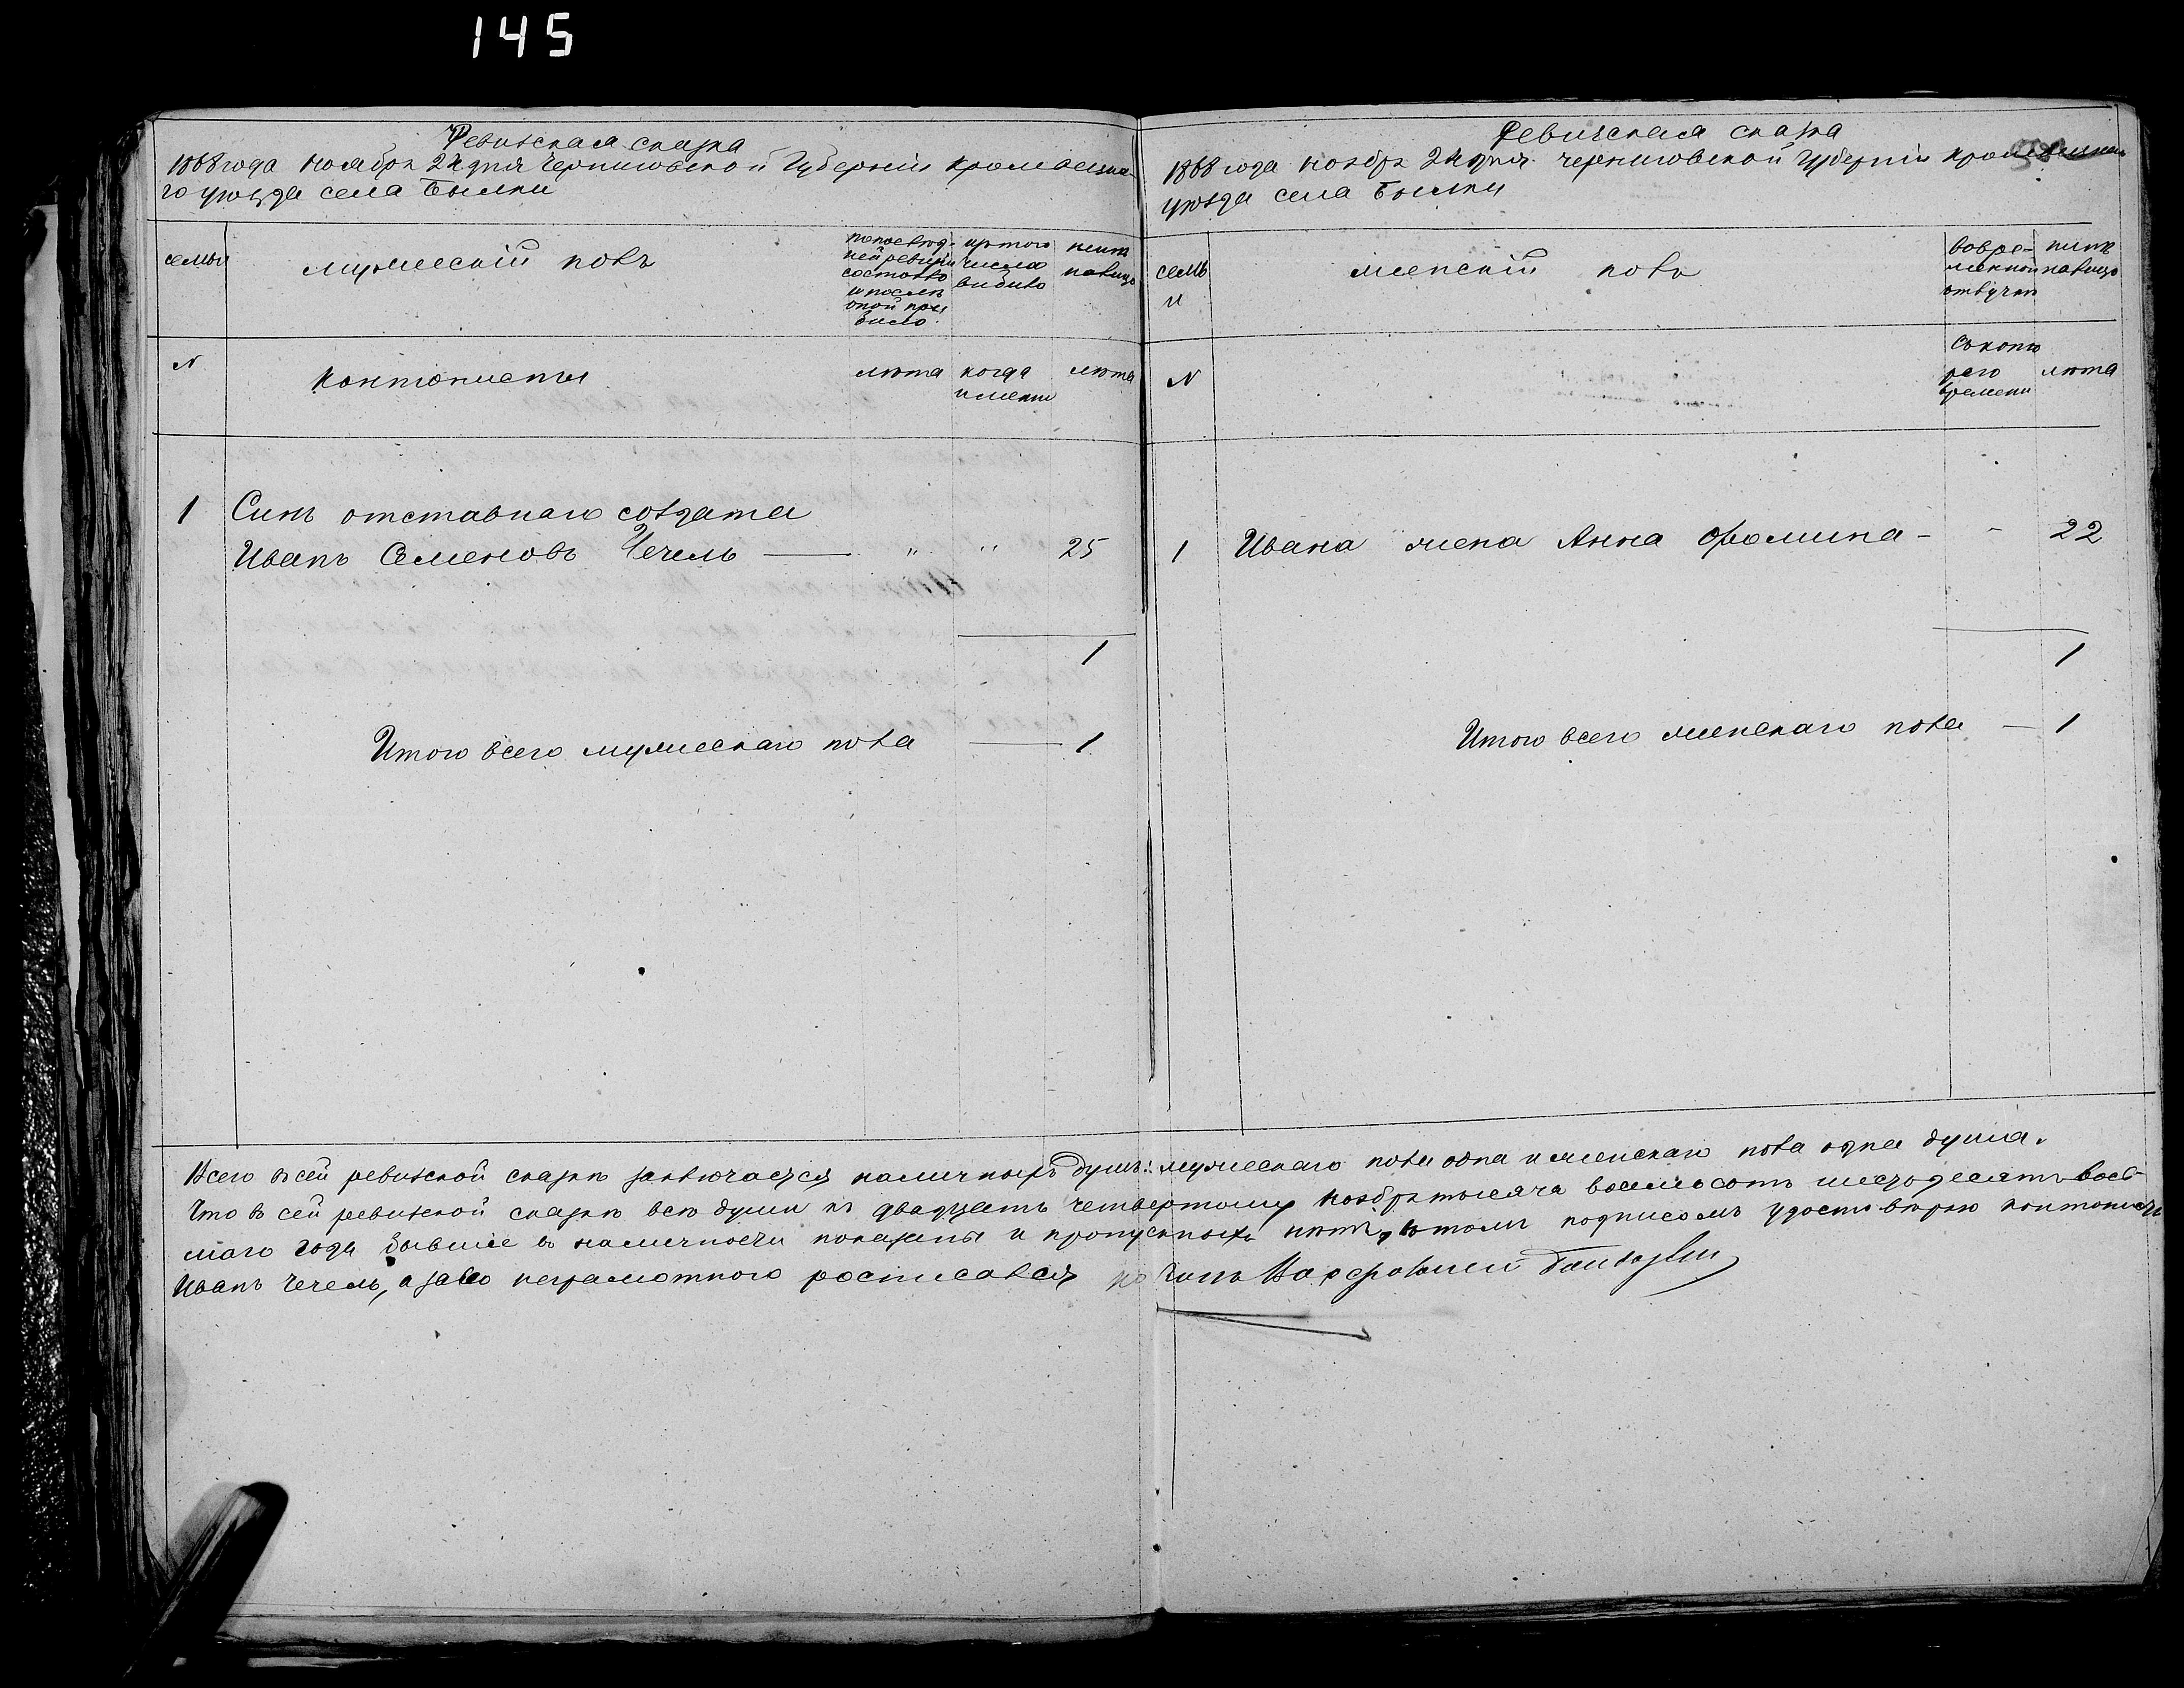 145
Ревизская сказка
1868 года ноября 24 дня Черниговской Губернии Кролевецка-
го уѣзда села Былки
семьи
мужескій полъ
по послѣд-
ней ревизіи
состояло
и послѣ
оной при
было
изъ того
числа
выбыло
нынѣ
налицо
N
Контониста
лѣта
когда
именно
лѣта
1 Синъ отставнаго солдата
Иванъ Семеновъ Чечель — " " 25
1
Итого всего мужескаго пола — 1
Ревизская сказка
1868 года ноября 24 дня Черниговской Губерніи
уѣзда села Былки
семь
и
женскій полъ
во вре-
менной
отлучкѣ
нынѣ
налицо
N
съ кото
раго
времени
лѣта
1 Ивана жена Анна Фомина - - 22
1
Итого всего женскаго пола — 1
Всего в сей ревизской сказкѣ заключается наличныхъ душъ: мужескаго пола одна и женскаго пола одна душа.
Что в сей ревизской сказкѣ всѣ души къ двадцать четвертому ноября тысяча восемьсотъ шездесятъ вось-
маго года бывшіе в наличности показаны и пропускныхъ нѣтъ, в томъ подписомъ удостовѣряю контонистъ
Иванъ Чечель, а за его неграмотного росписался